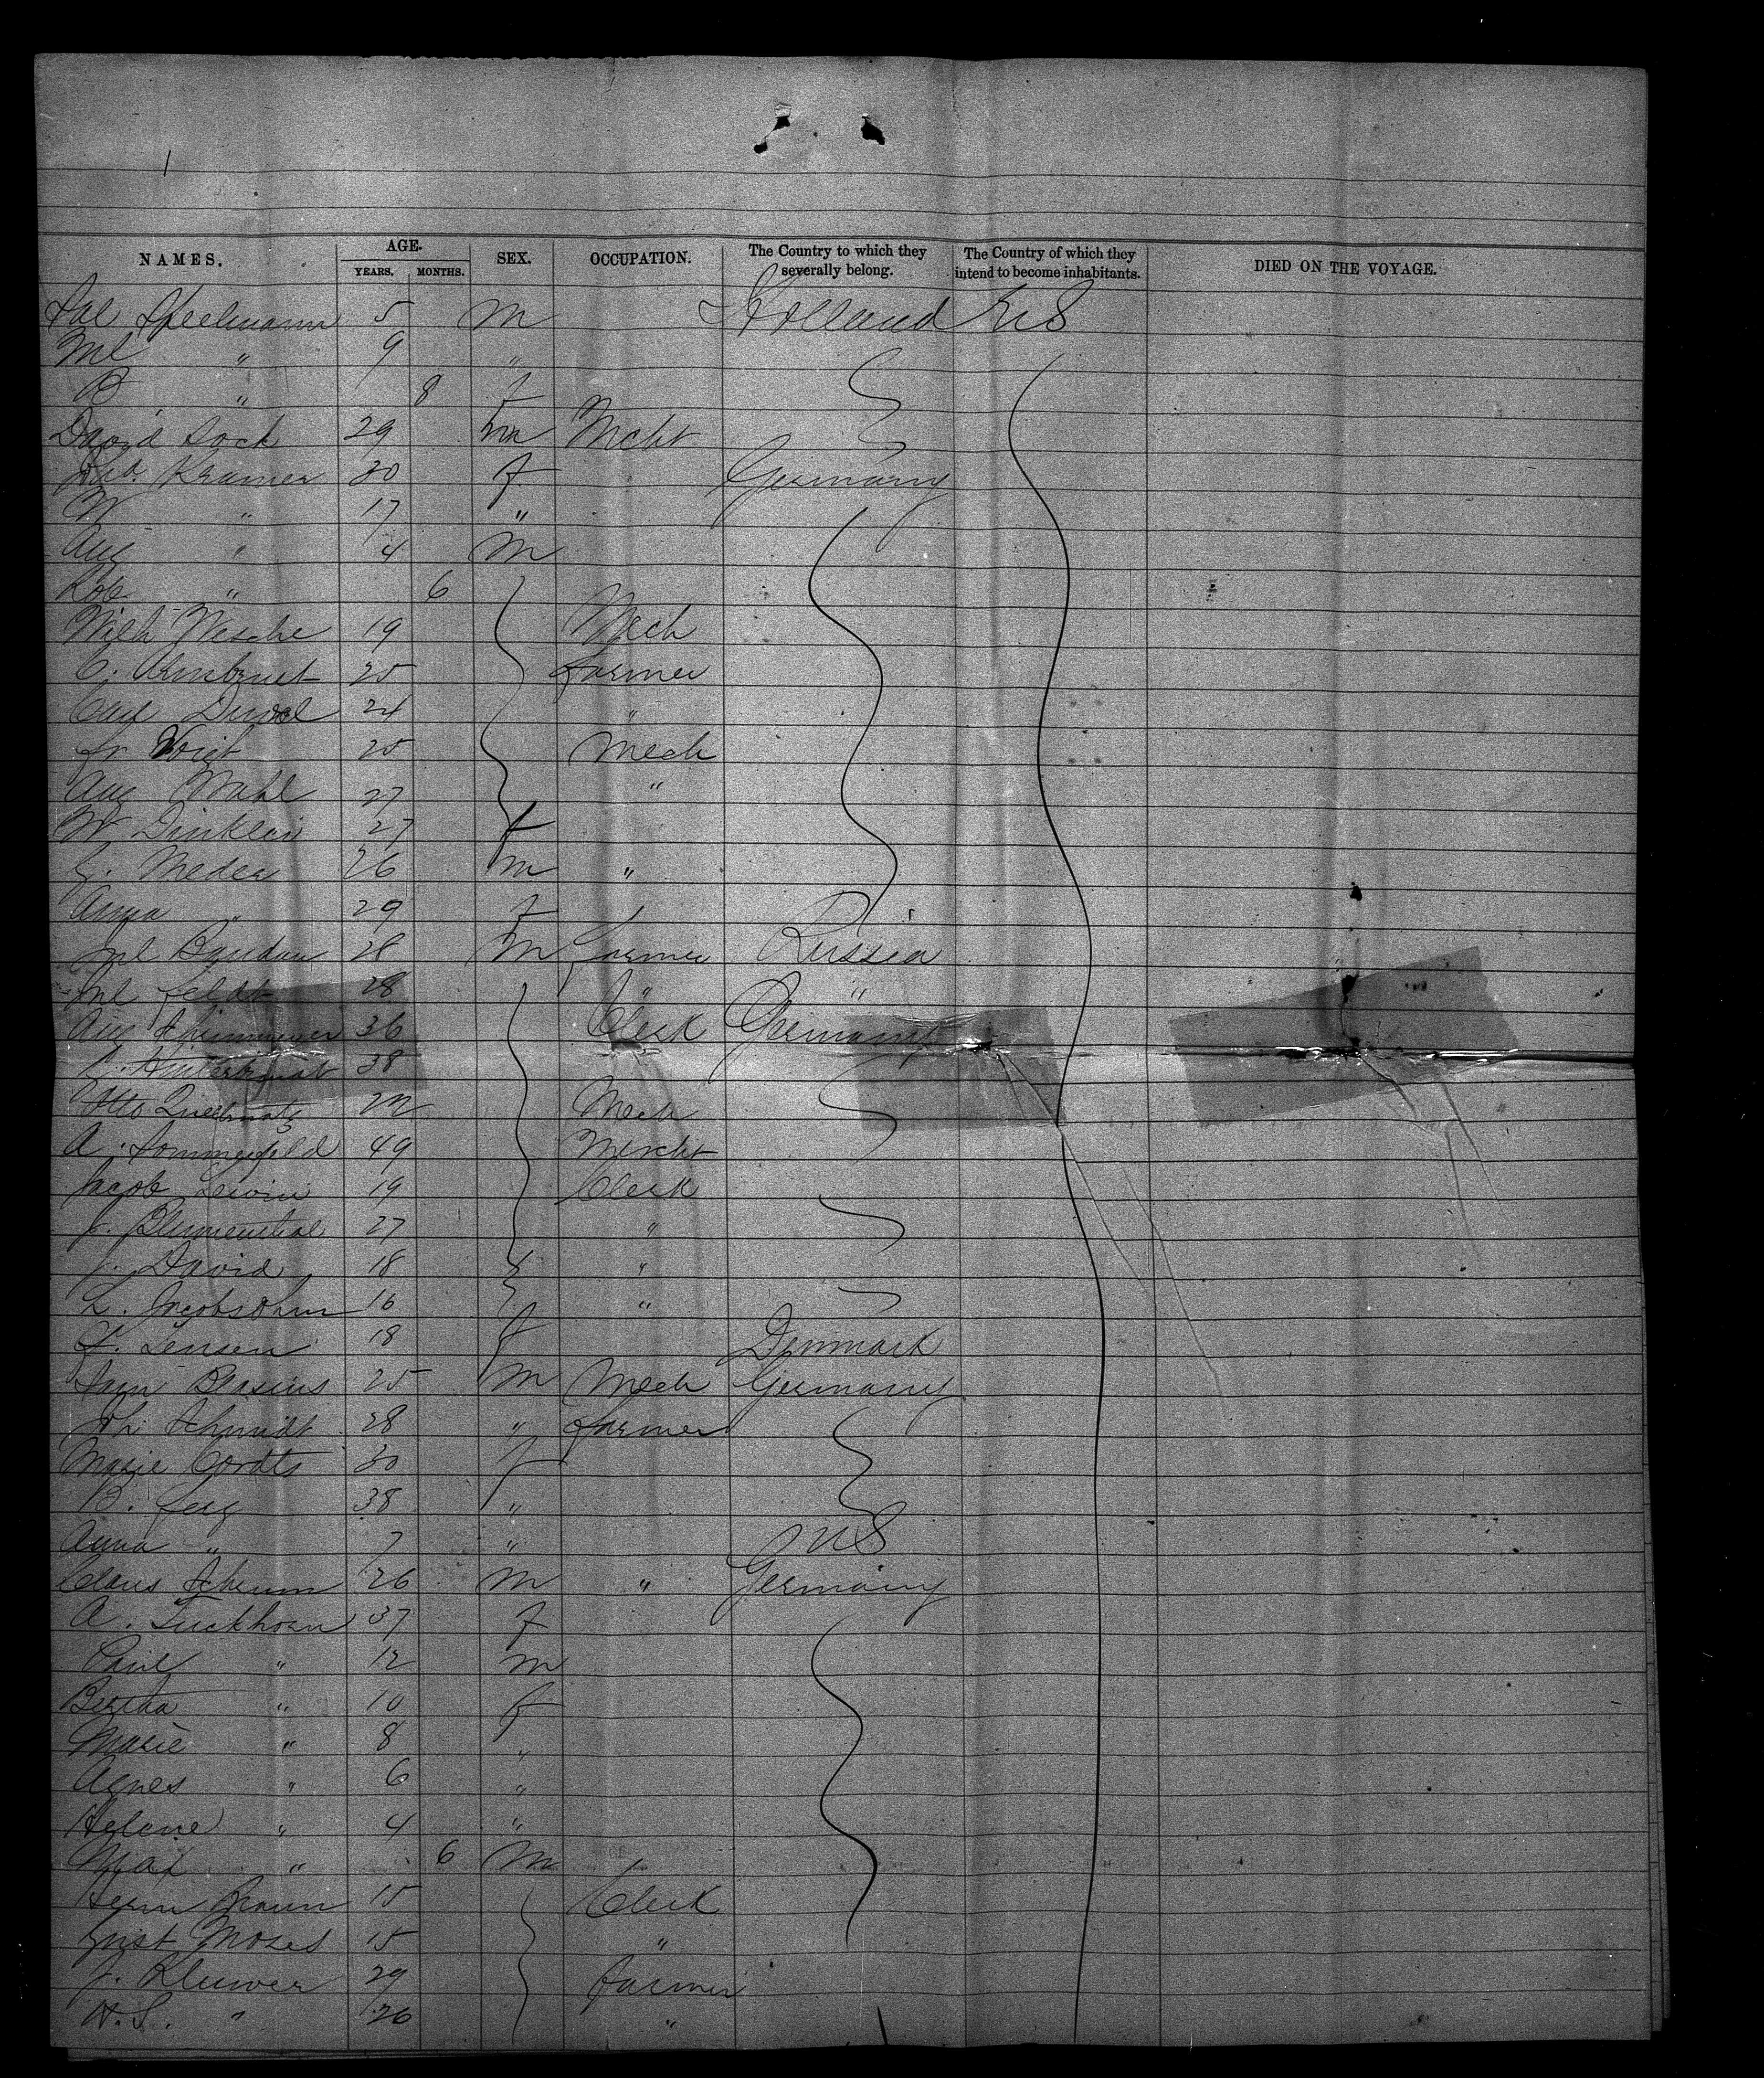 NAMES. AGE. SEX. OCCUPATION. The Country to which they severally belong. The Country of which they intend to become inhabitants. DIED ON THE VOYAGE.
YEARS. MONTHS.
Sal Speelmann 5 m Holland U S
Ml " 9 "
B " 8 f
David Sock 29 m Mcht
Kramer 30 f Germany
W " 17 "
Aug " 4 m
Rob " 6
Wilh Wesche 19 Mech
C. Armbrust 25 farmer
Carl 24 "
Fr Voigt 25 Mech
Aug Wahl 27 "
W 27 f
G. Meder 26 m "
Anna " 29 f
Ml 28 m farmer Russia
Ml Feldt 28 " "
Aug 36 Clerk Germany
38
Otto 22 Mech
A. Sommerfeld 49 Mercht
Jacob Lewin 19 Clerk
J. Blumenthal 27 "
J. David 18 "
L. Jacobsohn 16 "
F. Jensen 18 f Denmark
Sam Blasius 25 m Mech Germany
Joh Schmidt 28 " farmer
Marie Cordts 30 f
B. 38 "
Anna " 7 " U S
Claus 26 m " Germany
A. Tuckhorn 37 f
Paul " 12 m
Bertha " 10 f
Marie " 8 "
Agnes " 6 "
Helene " 4 "
Max " 6 m
Herm Braun 15 Clerk
Gust Moses 15 "
J. Kluwer 29 farmer
H. S. " 26 "